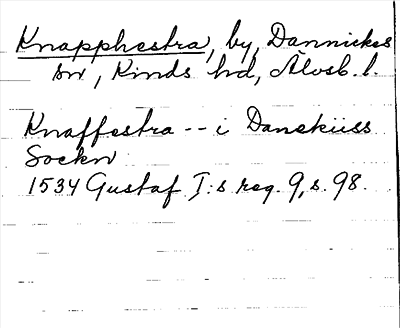 Knapphestra, by, Dännickes
sn, Kinds hd, Älvsb. l.
Knaffestra -- i Danskiiss
Sockn
1534 Gustaf I:s reg. 9, s. 98.